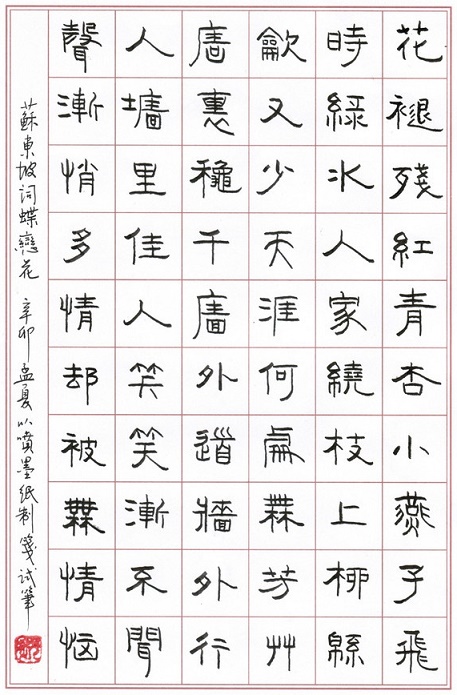 花褪殘紅青杏小燕子飛
時綠水人家繞枝上柳緜
龡又少天涯何處無芳艸
廧裏穐千廧外道牆外行
人墻里佳人笑笑漸不聞
聲漸悄多情却被無情恼
蘇東坡詞蝶戀花 辛卯孟夏以噴墨紙制箋試筆